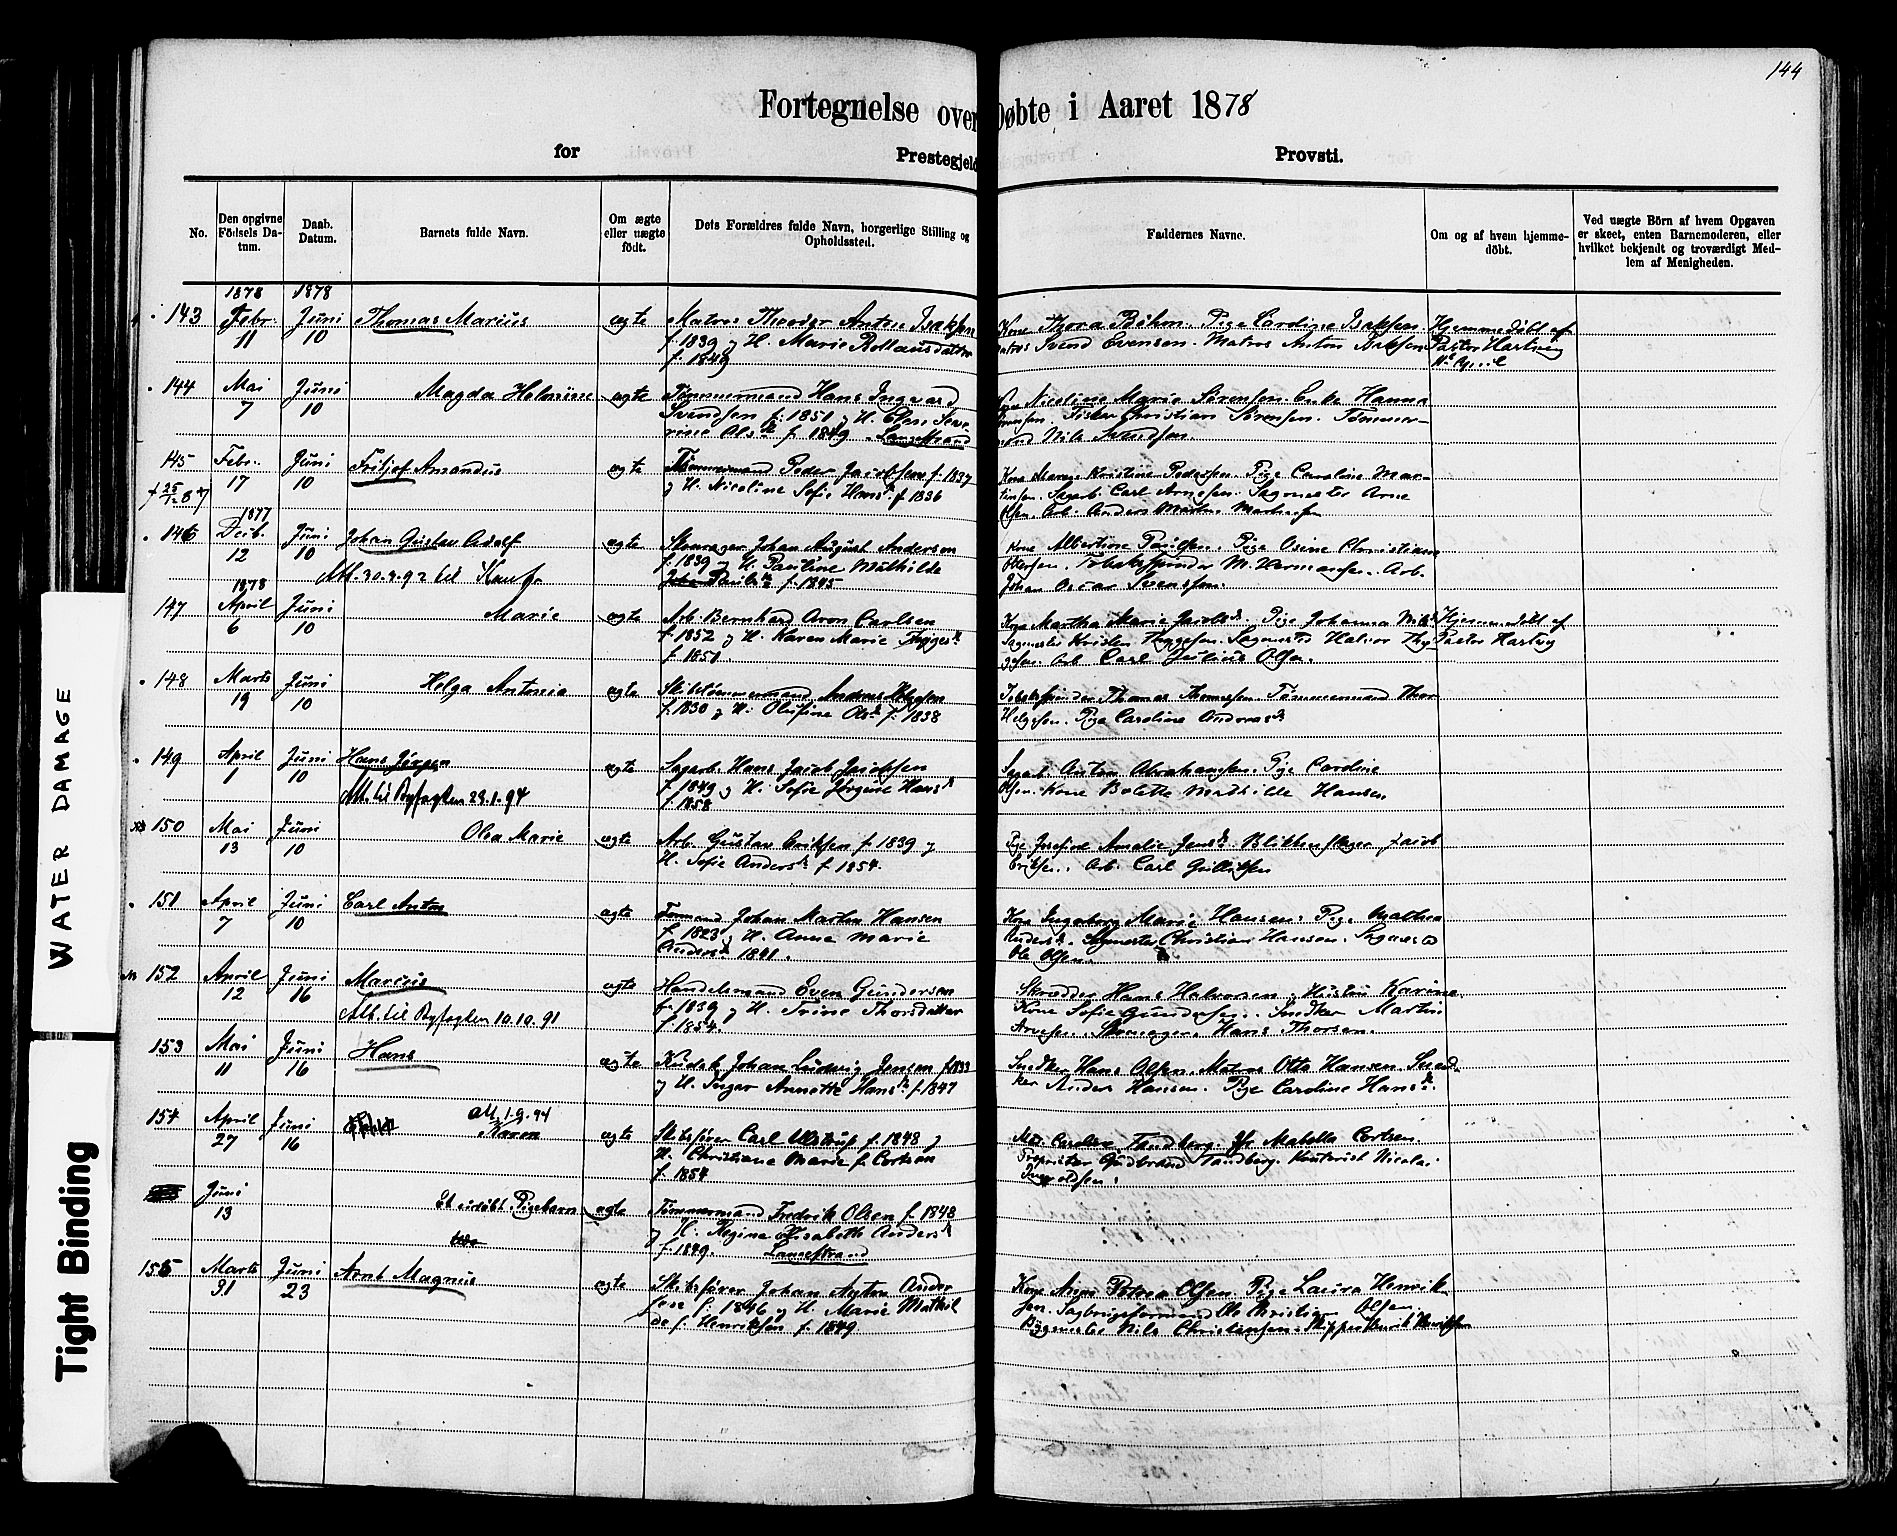 144
Fortegnelse over Døbte i Aaret 1878
for Prestegjeld Provsti.
No.
Den opgivne Födsels Da-
tum.
Daab.
Datum.
Barnets fulde Navn.
Om ægte
eller uægte
födt.
Dets Forældres fulde Navn, borgerlige Stilling og
Opholdssted.
Faddernes Navne.
Om og af hvem hjemme-
döbt.
Ved uægte Börn af hvem Opgaven
er skeet, enten Barnemoderen, eller
hvilket bekjendt og troværdigt Med-
lem af Menigheden.
1878 1878
143 Febr. Juni Thomas Marius ægte Matros Theodor Anton Isaksen Kone Thora Böhm. Pige Caroline Isaksen Hjemmedöbt af
11 10 f. 1839 og H. Marie Svend Evensen. Matros Anton Isaksen Pastor Hartvig
f. 1849
144 Mai Juni Magda Helmine ægte Tömmermand Hans Ingvard Nicoline Marie Sörensen. Enke Hanna
7 10 Svendsen f. 1851 og H. Christian Sörensen. Tömmer-
Ols f. 1849 Langestrand mand Nils Svendsen.
145 Febr. Juni Fritjof Amandus ægte Tömmermand Peder Jacobsen f. 1837 Kone Maren Kristine Pedersen. Pige Caroline Mar-
17 10 og H. Nicoline Sofie Hans f. 1836 tinsen. Sagarb. Carl Arnesen. Sagmester Arne
1877 Olsen. Arb. Anders
146 Decb. Juni Johan Gustav Adolf ægte Skomager Johan August Anderson Kone Albertine Paulsen. Pige Osine Christiane
12 10 f. 1839 og H. Pauline Mathilde M. Hermansen. Arb.
1878 Att. 30.3.92 til f. 1845 Johan Oscar Svensson.
147 April Juni Marie ægte Arb. Bernhard Aron Carlsen Kone Martha Marie Pige Johanna Hjemmedöbt af
6 10 f. 1852 og H. Karen Marie Sagmester Kristen Sagmester Halvor Pastor Hartvig
f. 1851. Arb. Carl Julius Olsen.
148 Marts Juni Helga Antonia ægte Skibstömmermand Thomas Thomessen Tömmermand Thor
19 10 f. 1830 og H. Olufine Ols f. 1838 Helgesen. Pige Caroline
149 April Juni Hans Jörgen ægte Sagarb. Hans Jacob Jacobsen Sagarb. Anton Abrahamsen. Pige Caroline
1 10 f. 1849 og H. Sofie Jörgine Hans Olsen. Kone Bolette Mathilde Hansen
Att. til Byfogden 29.1.94 f. 1858
150 Mai Juni Olea Marie ægte Arb. Gustav Eriksen f. 1839 og Pige Josefine Amalie Jens Blikkenslager Jacob
13 10 H. Sofie Anders f. 1854. Eriksen. Arb. Carl Gulliksen
151 April Juni Carl Anton ægte Formand Johan Martin Hansen Kone Ingeborg Marie Hansen. Pige Mathea
7 10 f. 1823 og H. Anne Marie Anders. Sagmester Christian Hansen.
Anders 1841. Ole Olsen.
152 April Juni Marius ægte Handelsmand Even Gundersen Skredder Hans Halvorsen. Hustru Karine.
12 16 f. 1839 og H. Trine Thorsdatter Kone Sofie Gundersen. Snedker Martin
Att. til Byfogden 10.10.91 f. 1854. Arvesen. Skomager Hans Thorsen.
153 Mai Juni Hans ægte Kudsk Johan Ludvig Jensen f. 1833 Snedker Hans Olsen. Matros Otto Hansen. Sned-
11 16 og H. Inger Annette Hans f. 1847 ker Anders Hansen. Pige Caroline Hans.
154 April Juni Att. 1.9.94
Karen ægte Skibsförer Carl Ulstrup f. 1848 og Caroline Tandberg. Mabella Cortsen.
27 16 H. Christiane Marie f. Cortsen Proprietær Gudbrand Tandberg. Kontorist Nicolai
f. 1854
Juni Et udöbt Pigebarn ægte Tömmermand Fredrik Olsen f. 1848
13 og H. Regine Elisabeth Anders
f. 1849. Langestrand
155 Marts Juni Arnt Magnus ægte Skibsförer Johan Anton Ander Kone Anne Petrea Olsen. Pige Laura Henrik-
31 23 sen f. 1846 og H. Marie Mathil sen. Ole Christian Olsen.
de f. Henriksen f. 1849. Nils Christensen. Skipper Henrik Henriksen
WATER DAMAGE
Tight Binding